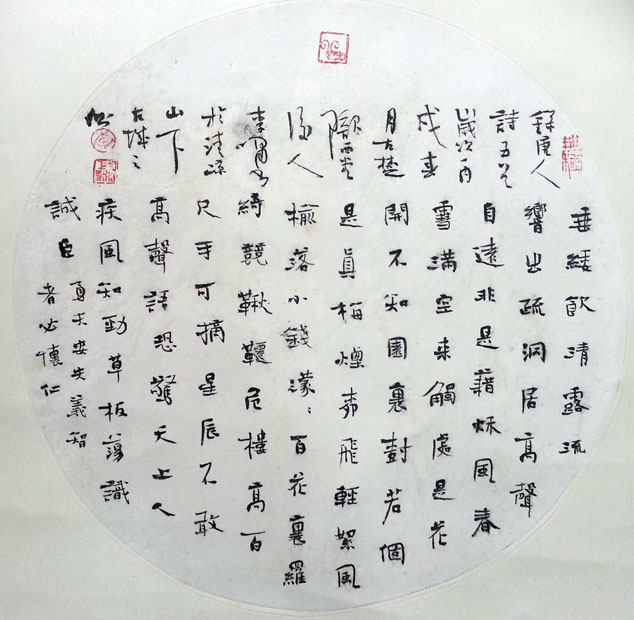 垂緌飲清露流
響出疏洞居高聲
自遠非是藉秋風春
雪滿空來觸處是花
開不知園裏樹若個
是真梅煙柳飛輕絮風
榆落小錢濛〻百花裏羅
綺競鞦韆危樓高百
尺手可摘星辰不敢
高聲語恐驚天上人
疾風知勁草板蕩識
誠臣
勇夫安失義智
者必懷仁
錄唐人
詩五首
歲次丙
戌春
月古楚
後人
李嘯
於清
山下
古城之